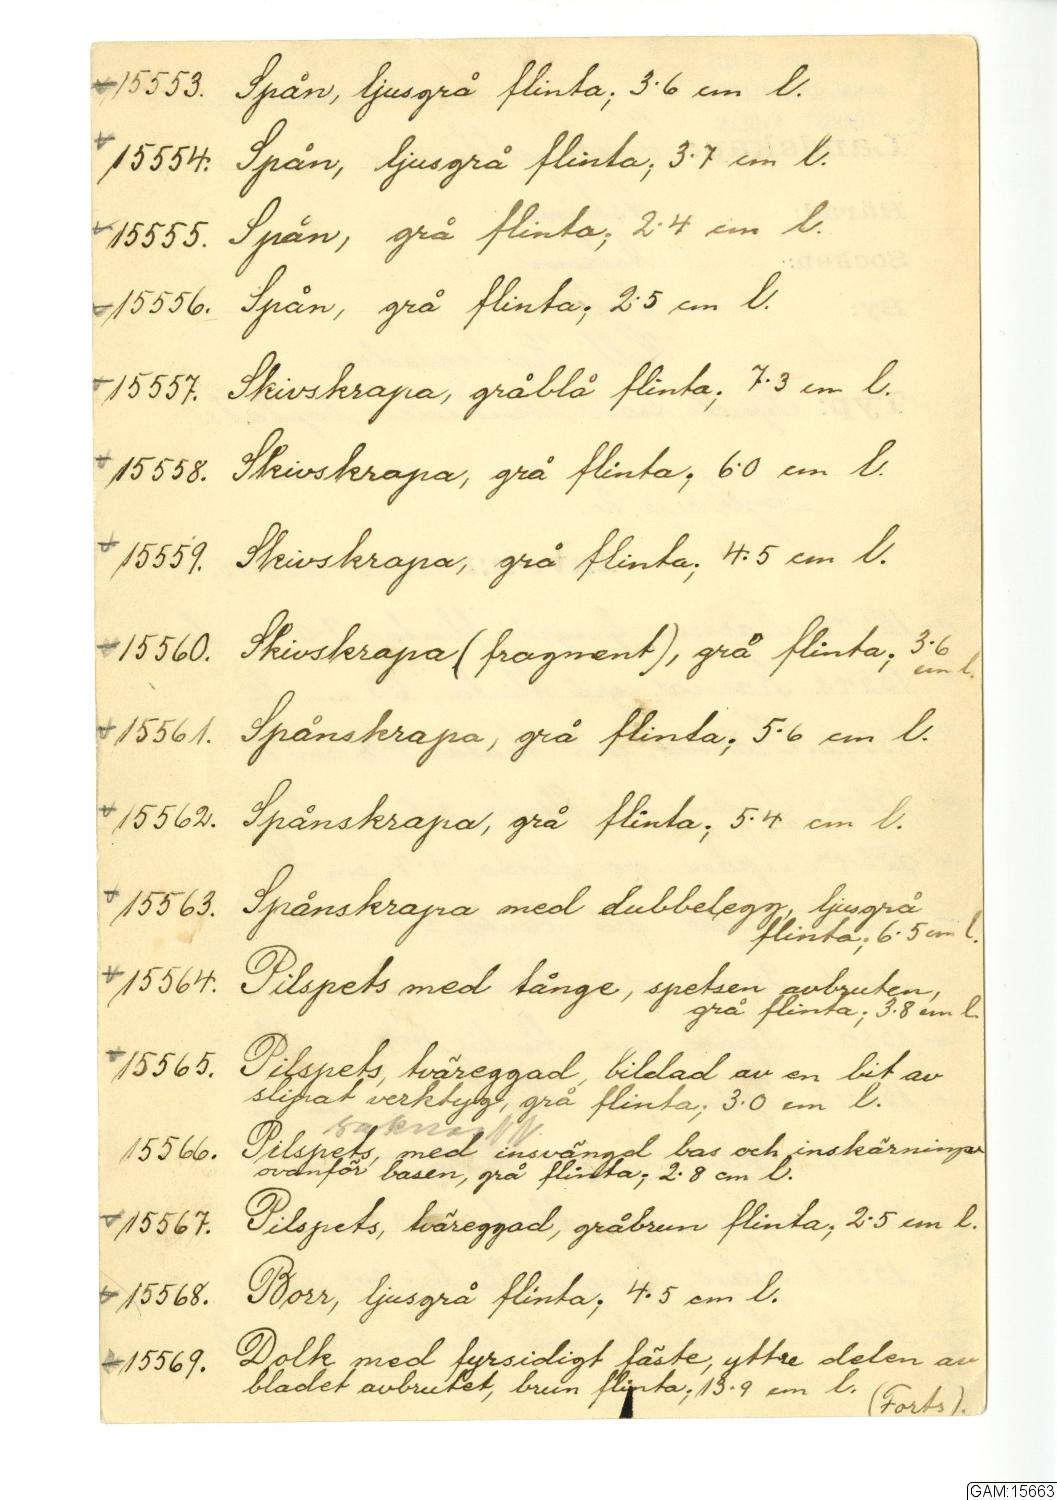 15553. Spån, ljusgrå flinta; 3·6 cm l.
15554. Spån, ljusgrå flinta; 3·7 cm l.
15555. Spån, grå flinta; 2·4 cm l.
15556. Spån, grå flinta; 2·5 cm l.
15557. Skivskrapa, gråblå flinta; 7·3 cm l.
15558. Skivskrapa, grå flinta; 6·0 cm l.
15559. Skivskrapa, grå flinta; 4·5 cm l.
15560. Skivskrapa (fragment), grå flinta; 3·6
cm l.
15561. Spånskrapa, grå flinta; 5·6 cm l.
15562. Spånskrapa, grå flinta; 5·4 cm l.
15563. Spånskrapa med dubbelegg, ljusgrå
flinta; 6·5 cm l.
15564. Pilspets med tånge, spetsen avbruten,
grå flinta; 3·8 cm l.
15565. Pilspets, tväreggad, bildad av en bit av
slipat verktyg, grå flinta; 3·0 cm l.
saknas
15566. Pilspets, med insvängd bas och inskärningar
ovanför basen, grå flinta; 2·8 cm l.
15567. Pilspets, tväreggad, gråbrun flinta; 2·5 cm l.
15568. Borr, ljusgrå flinta; 4·5 cm l.
15569. Dolk med fyrsidigt fäste, yttre delen av
bladet avbrutet, brun flinta; 13·9 cm l.
(Forts).
GAM:15663